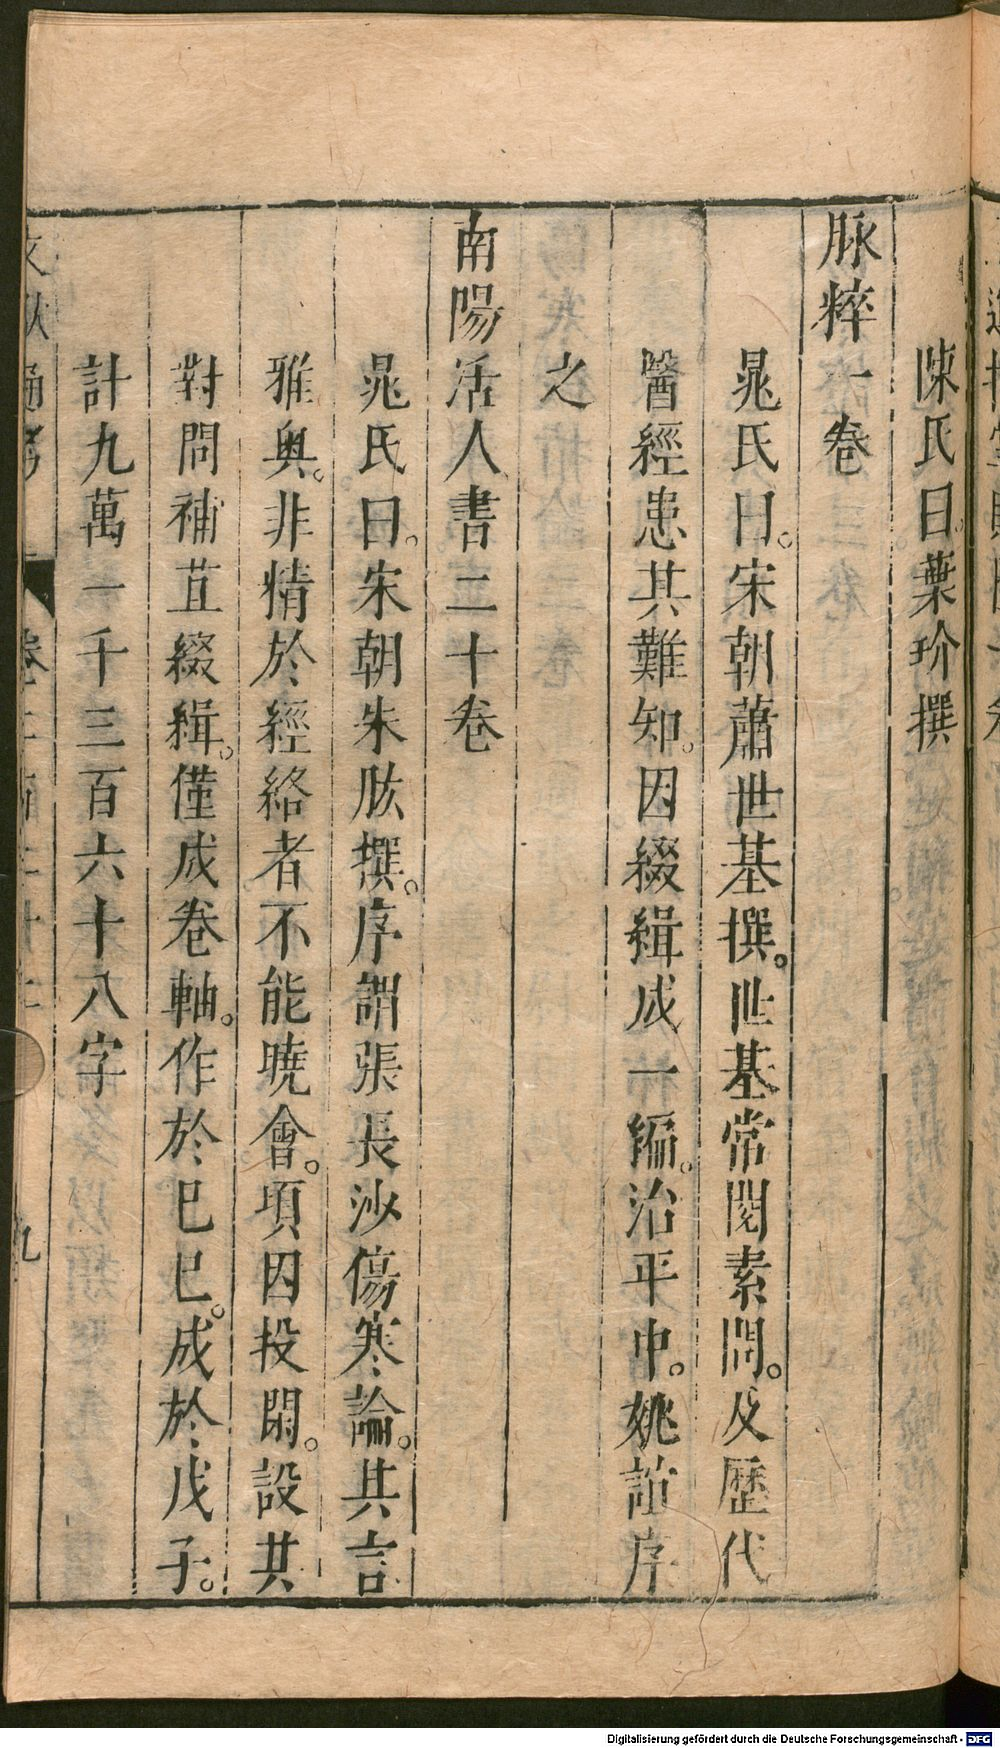 陳氏曰。葉玠撰
脉粹一卷
晁氏曰。宋朝蕭世基撰。世基常閱素問。及歷代
醫經患其難知。因綴緝成一編。治平中。姚誼序
之
南陽活人書二十卷
晁氏曰。宋朝朱肱撰。序謂張長沙傷寒論。其言
雅奥。非精於經絡者。不能曉會。項因投閑。設其
對問補苴綴緝。僅成卷軸。作於已已。成於戊子。
計九萬一千三百六十八字
文獻通考 卷二百二十二 九
Digitalisierung gefördert durch die Deutsche Forschungsgemeinschaft - DFG